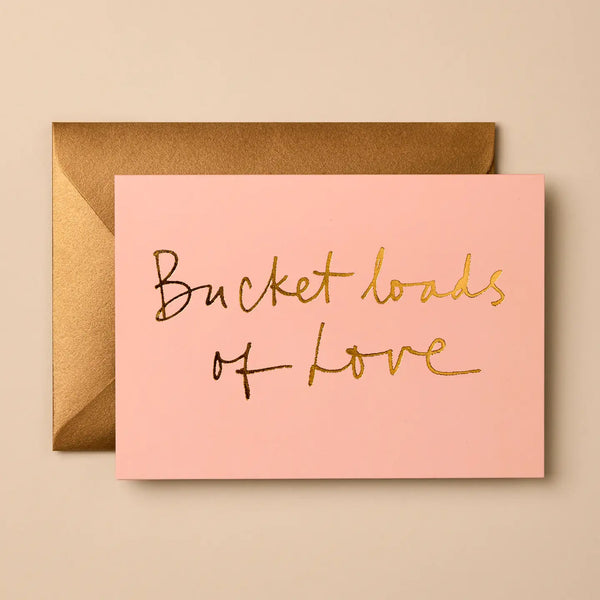 Bucket loads
of Love